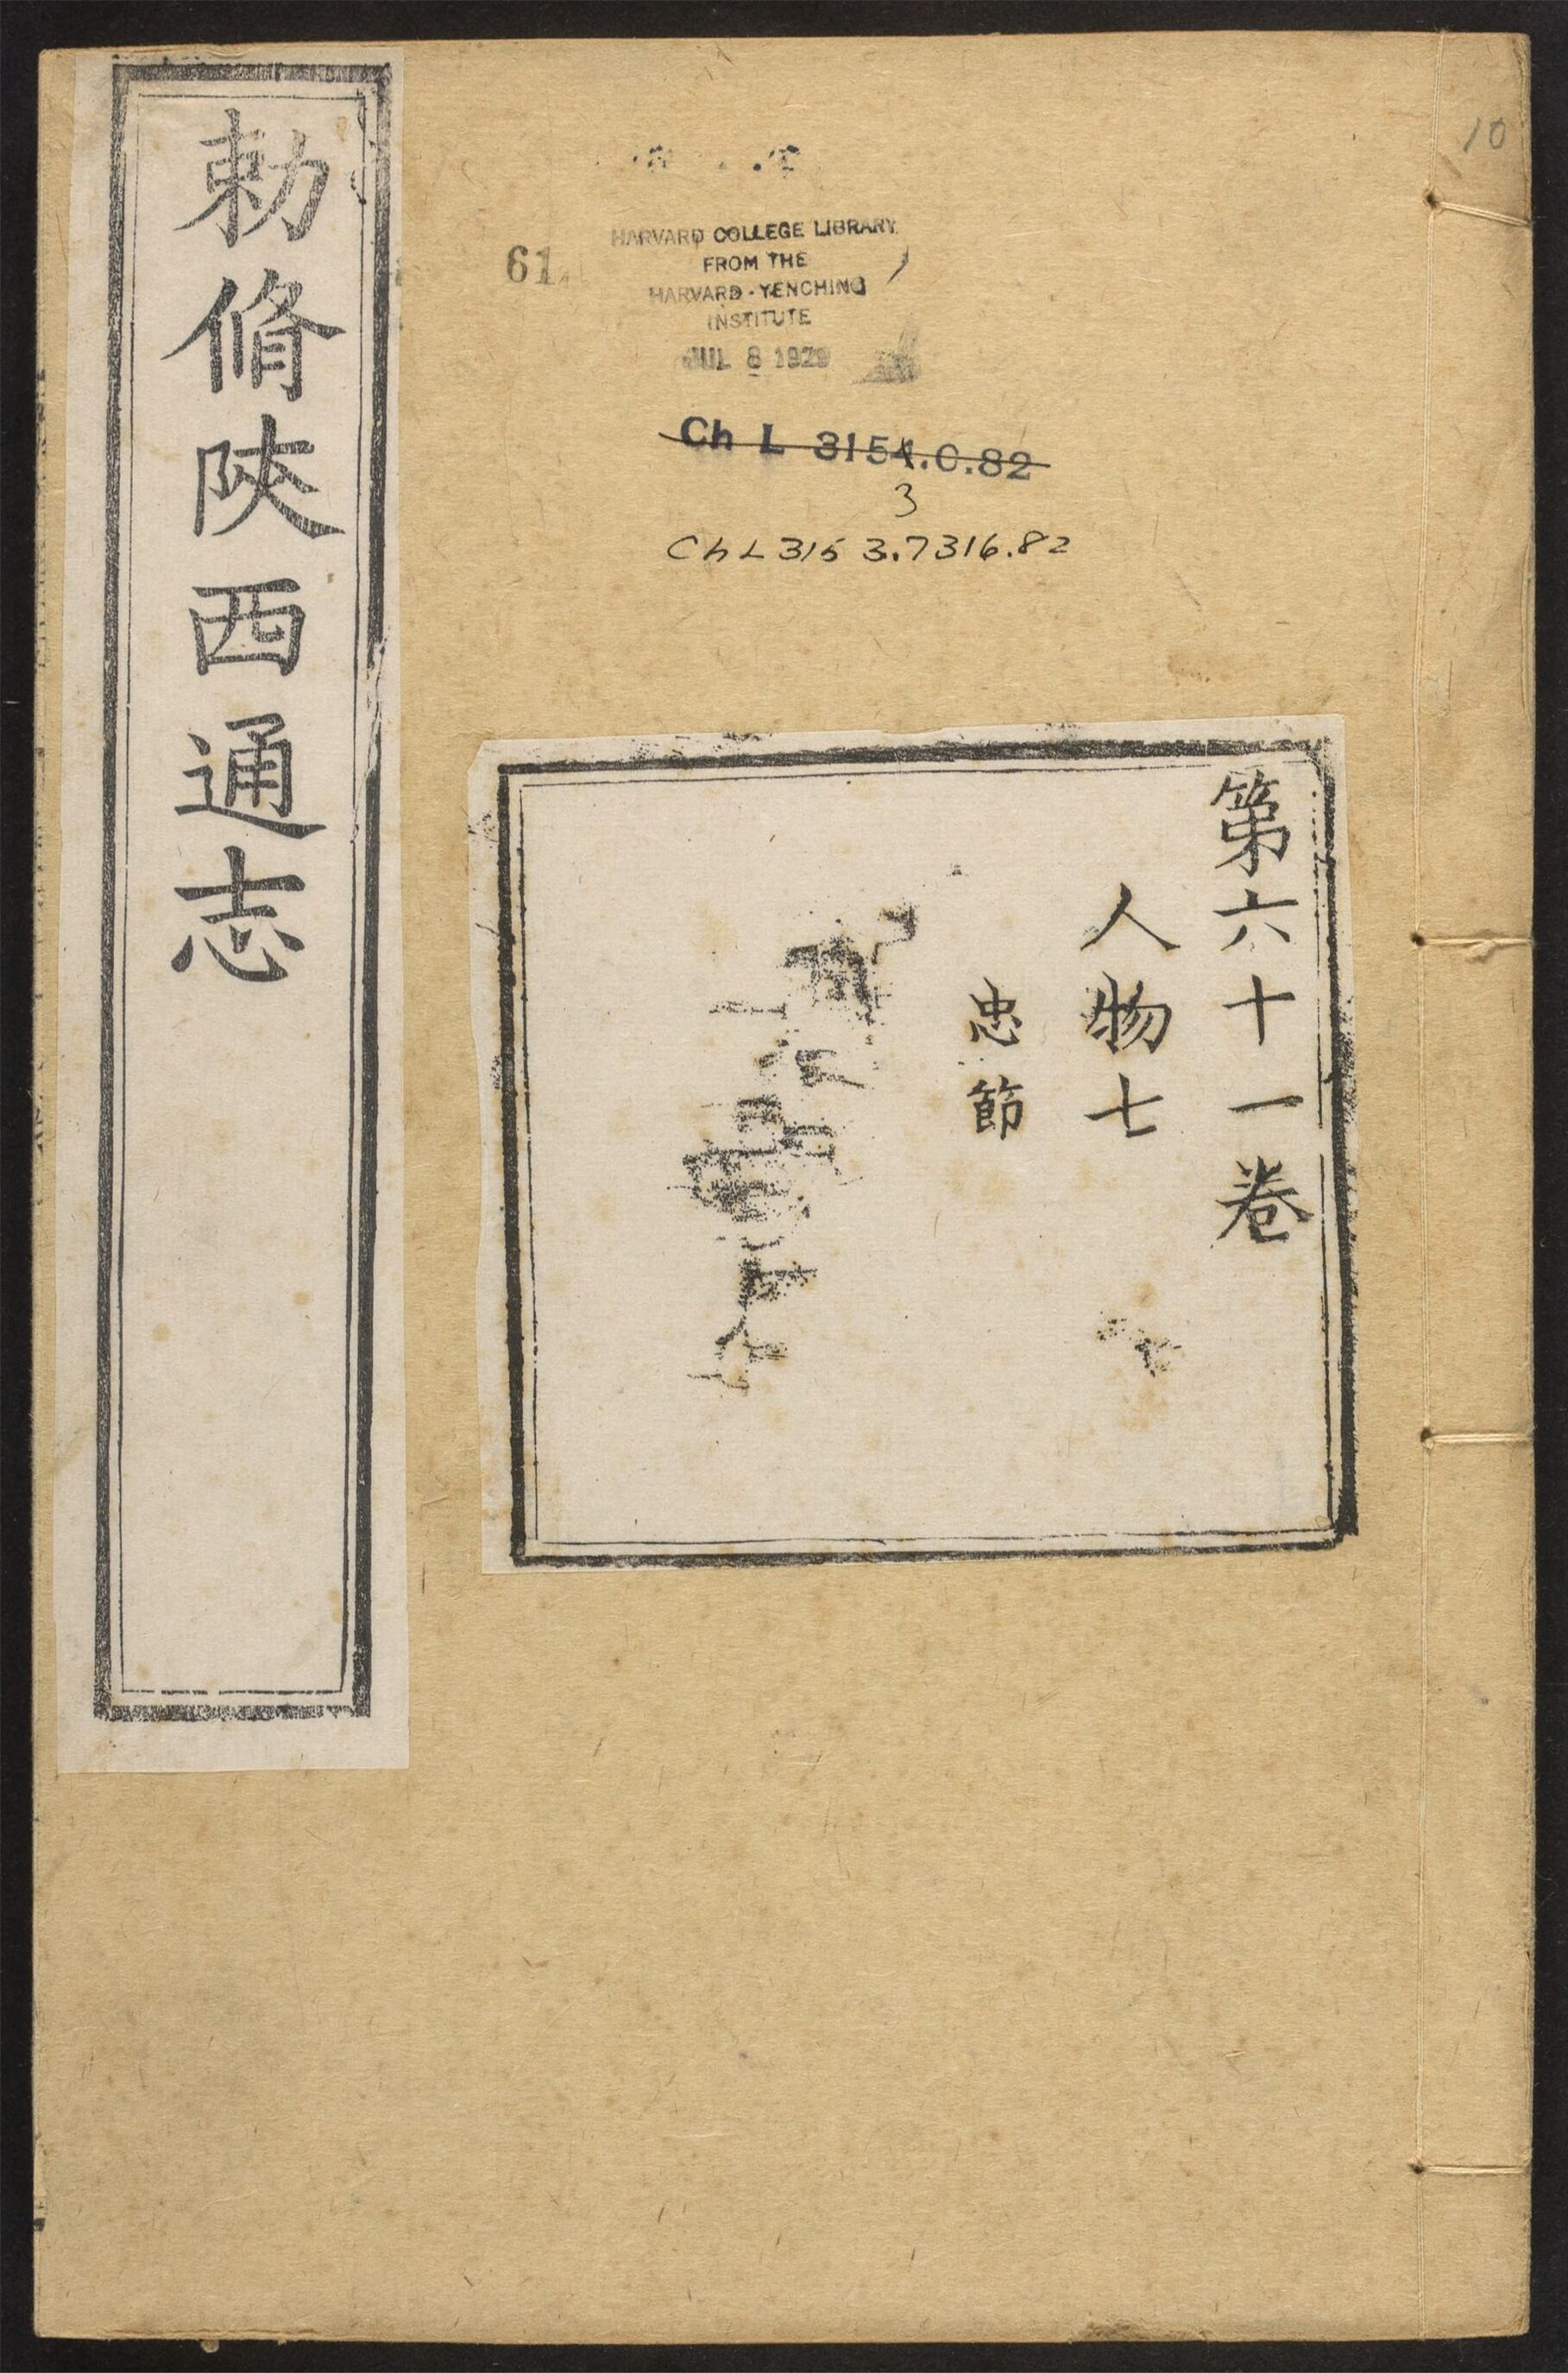 勅脩陜西通志
10
61
HARVARD COLLEGE LIBRARY
FROM THE
HARVARD-YENCHING
INSTITUTE
JUL 8 1929
Ch L 3154.C.82
3
ChL 3153.7316.82
第六十一卷
人物七
忠節